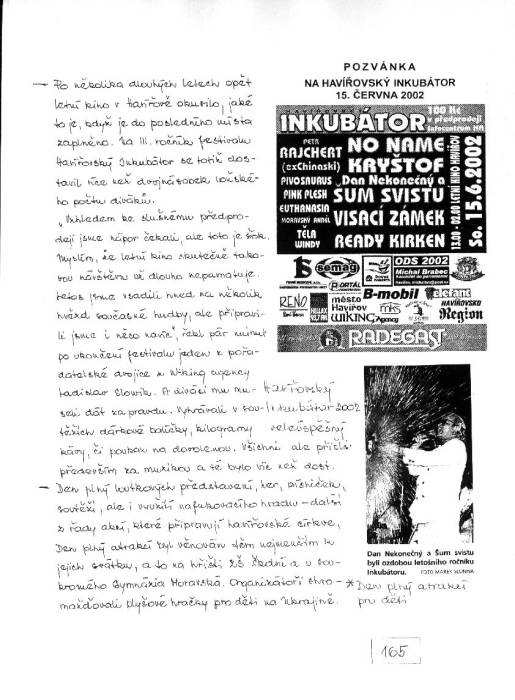 POZVÁNKA
NA HAVÍŘOVSKÝ INKUBÁTOR
15. ČERVNA 2002
— Po několika dlouhých letech opět
letní kino v Havířově okusilo, jaké
to je, když je do posledního místa
zaplněno. Na III. ročník festivalu
Havířovský Inkubátor se totiž dos-
tavil více než dvojnásobek loňské-
ho počtu diváků.
„Vzhledem ke slušnému předpro-
deji jsme nápor čekali, ale toto je šok.
Myslím, že letní kino skutečně tako-
vou návštěvu už dlouho nepamatuje.
Letos jsme vsadili hned na několik
hvězd současné hudby, ale připravi-
li jsme i něco navíc", řekl pár minut
po ukončení festivalu jeden z pořa-
datelské dvojice z Wiking agency
Ladislav Slowik. A diváci mu mu-
seli dát za pravdu. Vyhrávali v sou-
těžích dárkové balíčky, kilogramy
kávy, či poukaz na dovolenou. Všichni ale přišli
především za muzikou a té bylo víc než dost.
— Den plný loutkových představení, her, písniček,
soutěží, ale i využití nafukovacího hradu – další
z řady akcí, které připravují havířovské církve,
Den plný atrakcí byl věnován těm nejmenším k
jejich svátku, a to na hřišti ZŠ Školní a v sou-
kromého Gymnázia Moravská. Organizátoři shro-
mažďovali plyšové hračky pro děti na Ukrajině.
HAVÍŘOVSKÝ
INKUBÁTOR
100 Kč
v předprodeji
Infocentrum HA
PETR
RAJCHERT
(exChinaski)
PIVOSAURUS
PINK PLESH
EUTHANASIA
MORAVSKÝ ANDĚL
TĚLA
WINDY
NO NAME
KRYŠTOF
Dan Nekonečný a
ŠUM SVISTU
VISACÍ ZÁMEK
READY KIRKEN
13:00 - 02:00 LETNÍ KINO HAVÍŘOV
So. 15.6.2002
semag
ODS 2002
Michal Brabec
PORTÁL
RENO
HELAX
město
Havířov
WIKING Agency
B-mobil
mks
elefant
HAVÍŘOVSKO
Region
RADEGAST
Havířovský
Inkubátor 2002
veleúspěšný
Dan Nekonečný a Šum svistu
byli ozdobou letošního ročníku
Inkubátoru.
FOTO MAREK SLONINA
* Den plný atrakcí
pro děti
165